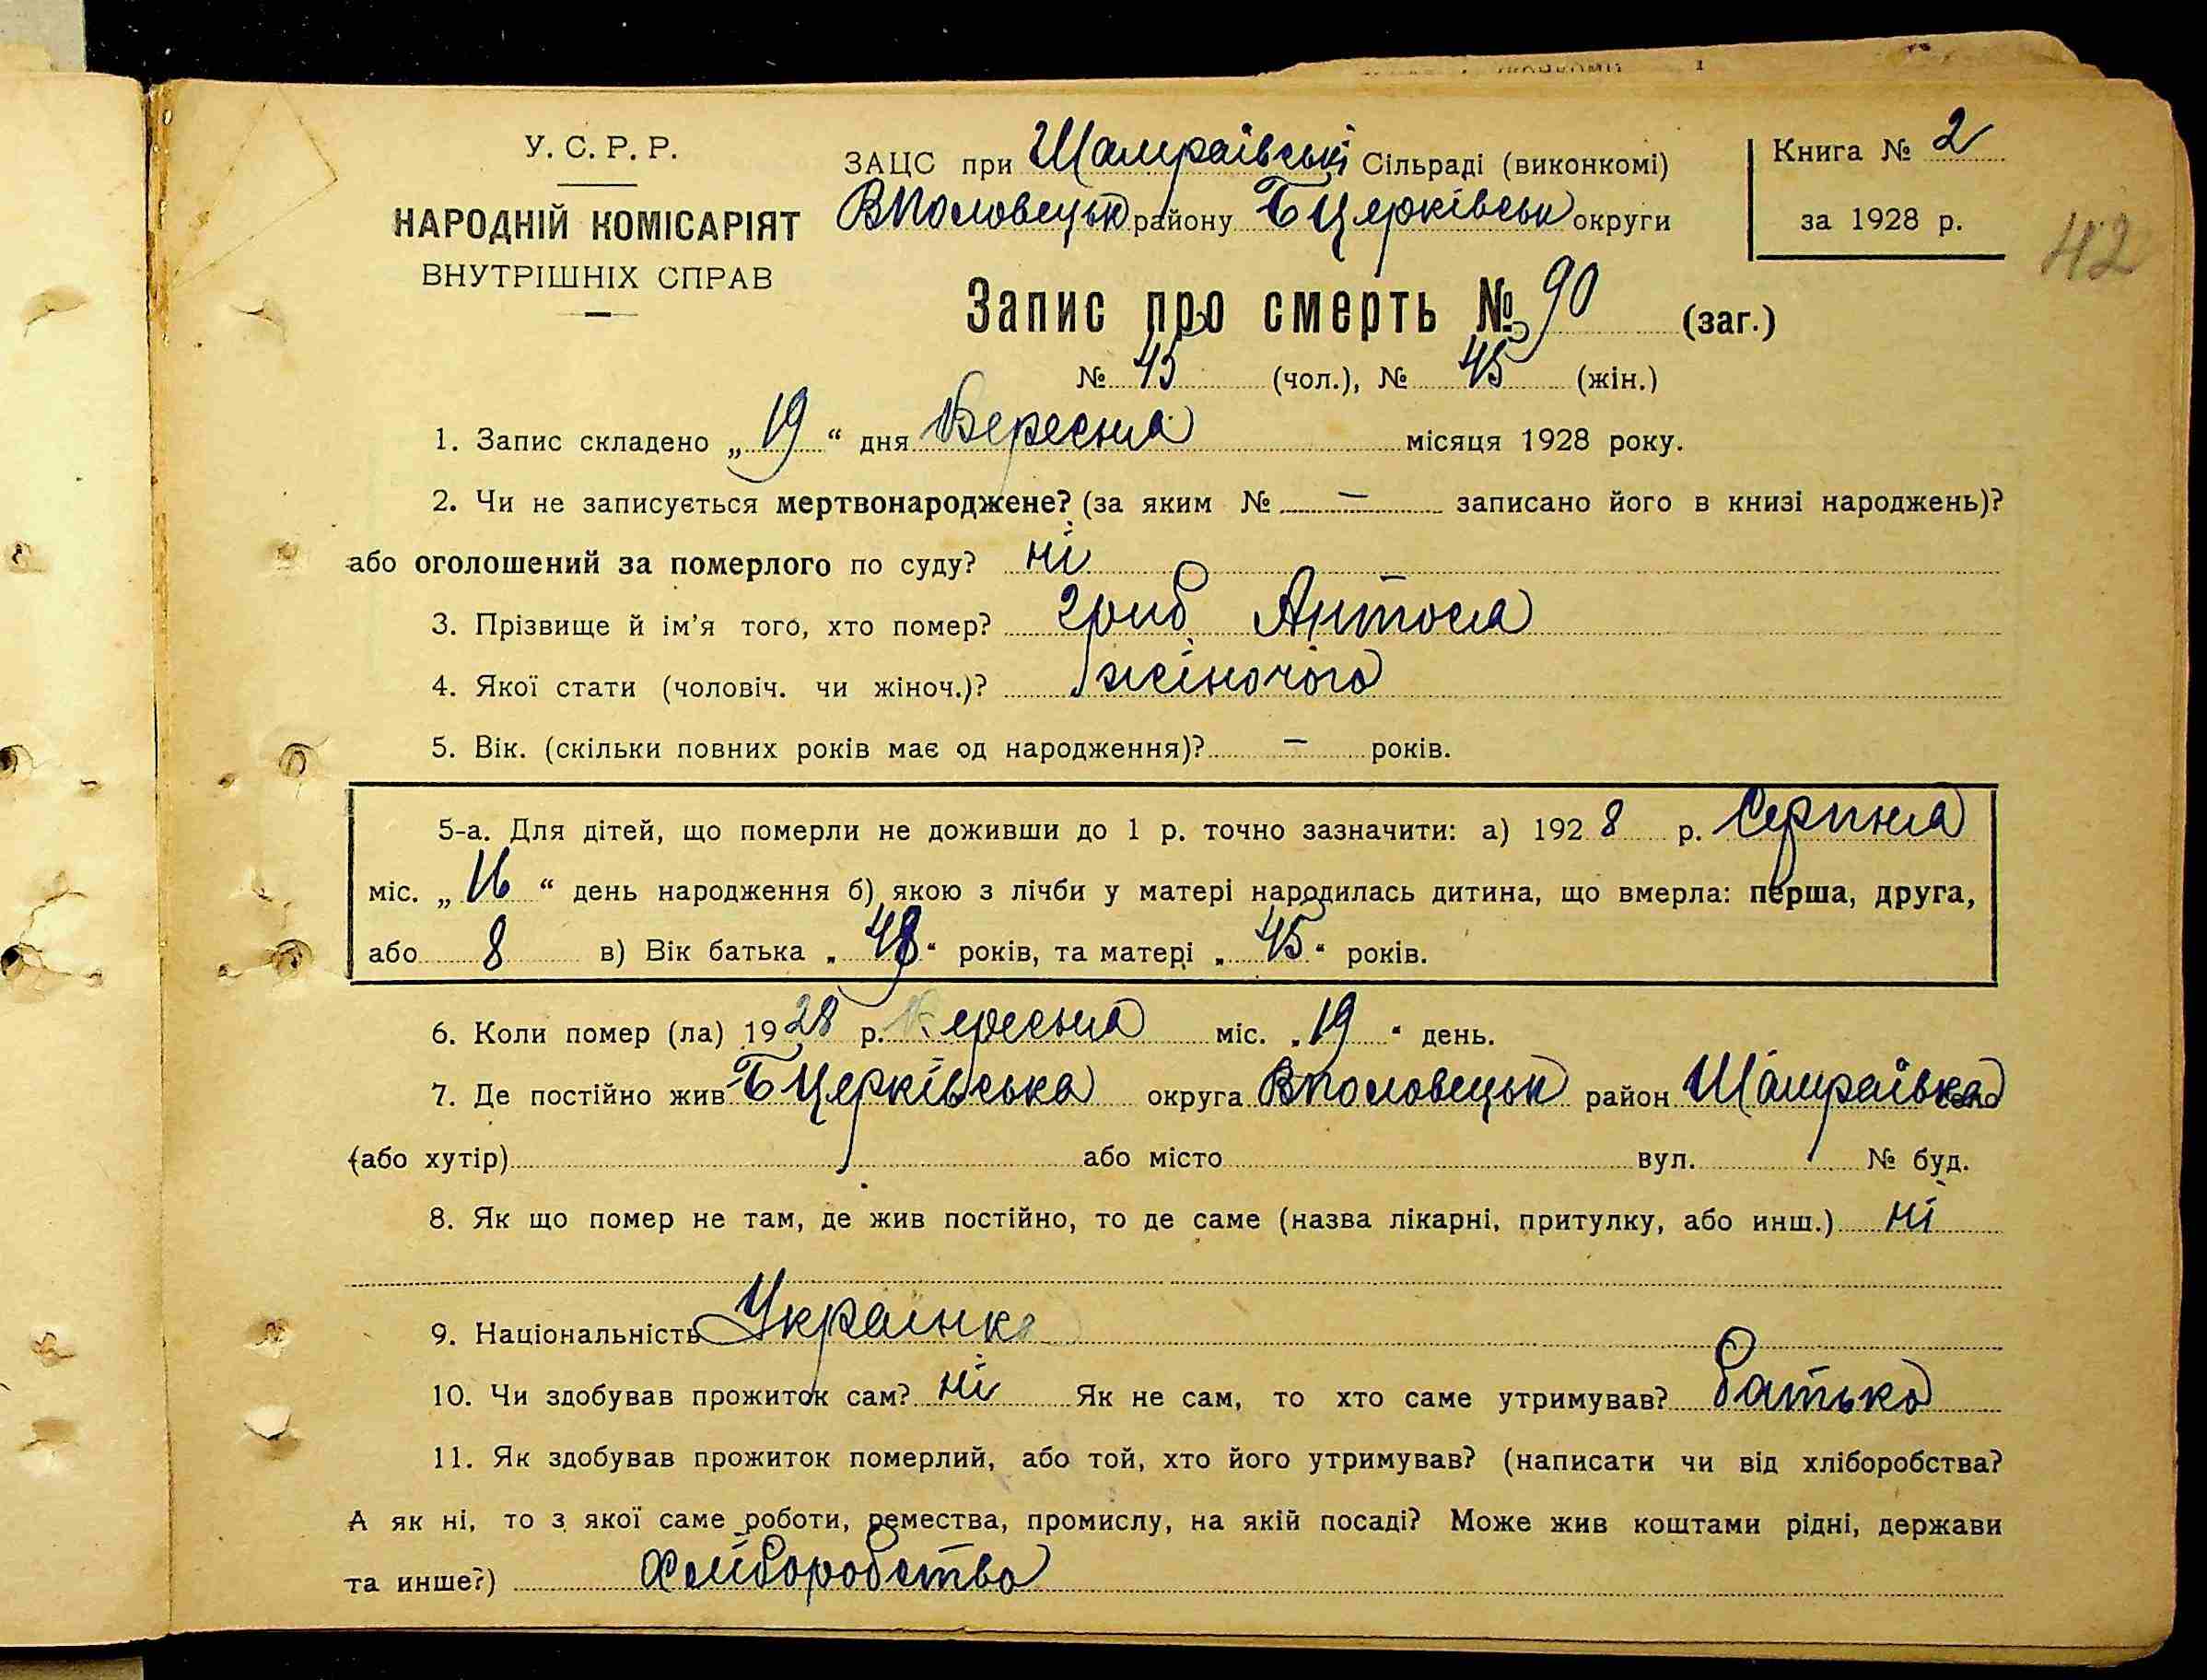 У. С. Р. Р.
НАРОДНІЙ КОМІСАРІЯТ
ВНУТРІШНІХ СПРАВ
ЗАЦС при Шамраївські Сільраді (виконкомі)
ВПоловецьк району БЦерківськ округи
Книга № 2
за 1928 р.
42
Запис про смерть № 90 (заг.)
№ 45 (чол.), № 45 (жін.)
1. Запис складено „ 19 “ дня Вересня місяця 1928 року.
2. Чи не записується мертвонароджене? (за яким № — записано його в книзі народжень)?
або оголошений за померлого по суду? ні
3. Прізвище й ім’я того, хто помер? Гриб Антося
4. Якої стати (чоловіч. чи жіноч.)? жіночого
5. Вік. (скільки повних років має од народження)? — років.
5-а. Для дітей, що померли не доживши до 1 р. точно зазначити: а) 1928 р. Серпня
міс. „ 16 “ день народження б) якою з лічби у матері народилась дитина, що вмерла: перша, друга,
або 8 в) Вік батька „ 48 “ років, та матері „ 45 “ років.
6. Коли помер (ла) 1928 р. Вересня міс. „ 19 “ день.
7. Де постійно жив БЦерківська округа ВПоловецьк район Шамраївка село
(або хутір) або місто вул. № буд.
8. Як що помер не там, де жив постійно, то де саме (назва лікарні, притулку, або инш.) ні
9. Національність Українка
10. Чи здобував прожиток сам? ні Як не сам, то хто саме утримував? батько
11. Як здобував прожиток померлий, або той, хто його утримував? (написати чи від хліборобства?
А як ні, то з якої саме роботи, ремества, промислу, на якій посаді? Може жив коштами рідні, держави
та инше?) Хліборобство